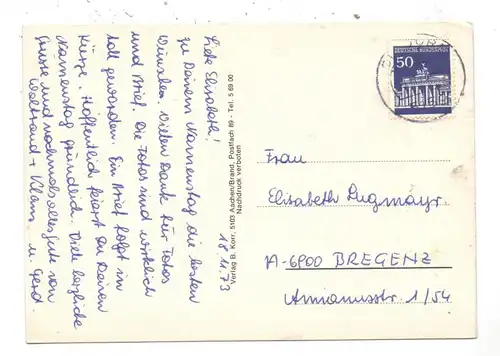 18.11.73
Liebe Elisabeth!
zu Deinem Namenstag die besten
Wünsche. Vielen Dank für Fotos
und Brief. Die Fotos sind wirklich
toll geworden. Ein Brief folgt in
Kürze. Hoffentlich feierst Du Deinen
Namenstag gründlich. Viele herzliche
Grüsse und nochmals alles gute von
Waltraud + Klaus u. Gerd.
Verlag B. Korr, 5103 Aachen/Brand, Postfach 89 - Tel. 5 69 00
Nachdruck verboten
DEUTSCHE BUNDESPOST
50
Frau
Elisabeth Lugmayr.
A-6900 BREGENZ
Arnianusstr. 1/54